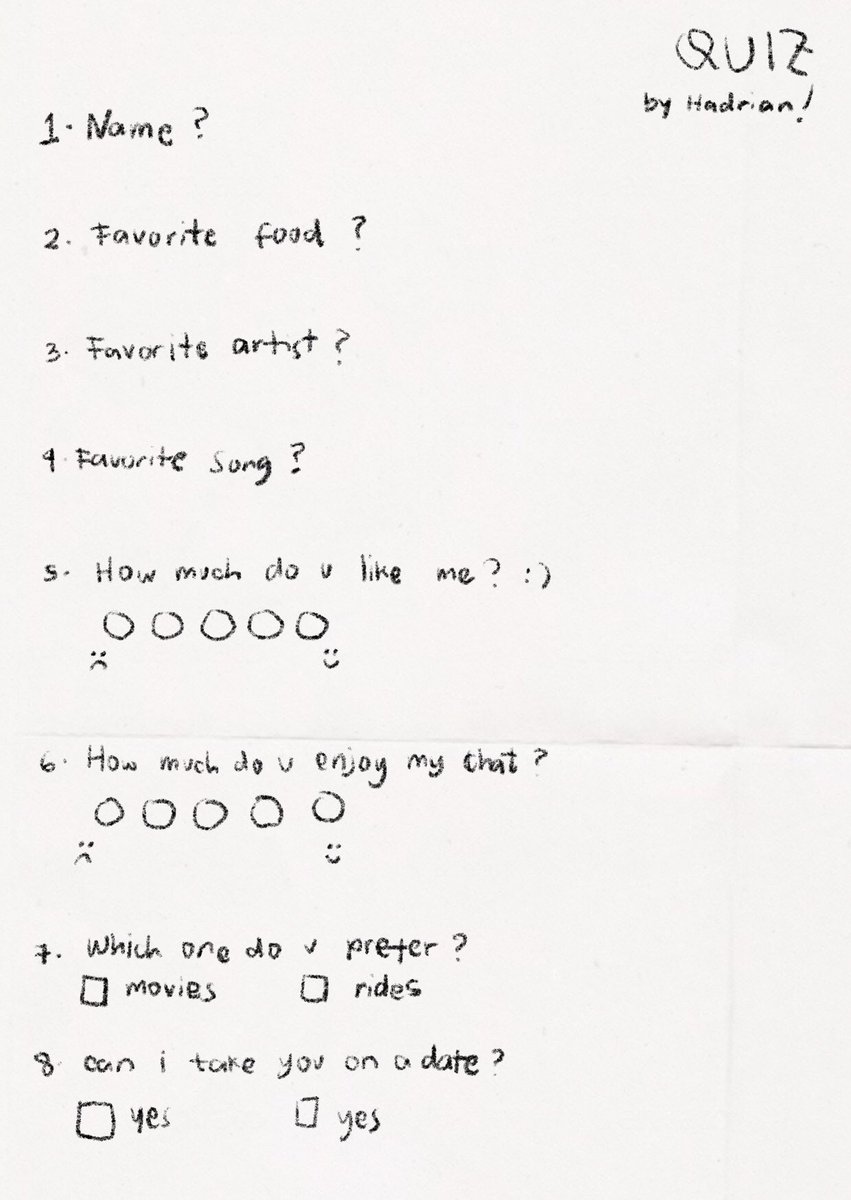 QUIZ
by Hadrian!
1. Name?
2. Favorite food?
3. Favorite artist?
4. Favorite song?
5. How much do u like me? :)
6. How much do u enjoy my chat?
7. Which one do u prefer?
movies rides
8. can i take you on a date?
yes yes